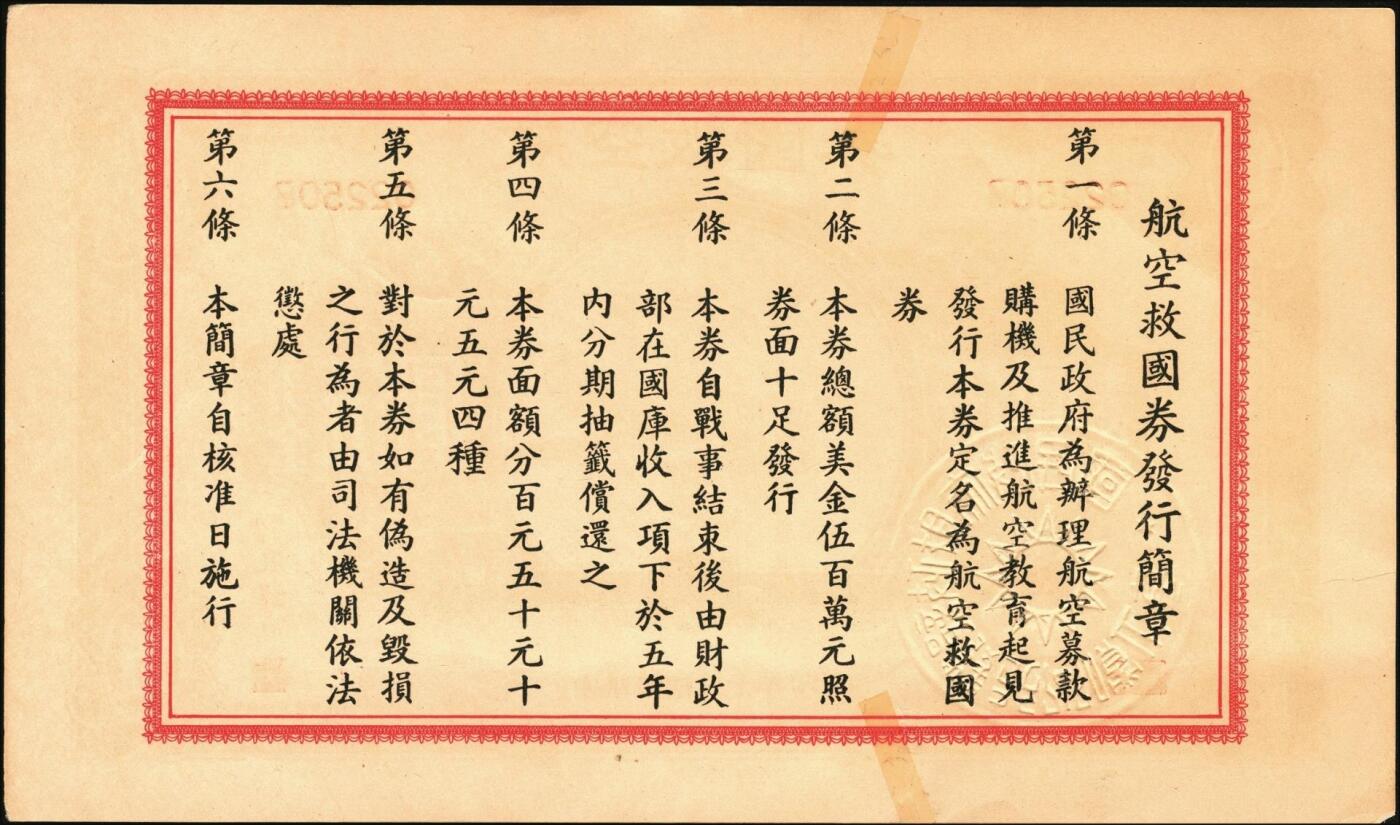 航空救國券發行簡章
第一條 國民政府為辦理航空募款
購機及推進航空教育起見
發行本券定名為航空救國
券
第二條 本券總額美金伍百萬元照
券面十足發行
第三條 本券自戰事結束後由財政
部在國庫收入項下於五年
內分期抽籤償還之
第四條 本券面額分百元五十元十
元五元四種
第五條 對於本券如有偽造及毀損
之行為者由司法機關依法
懲處
第六條 本簡章自核准日施行
022507
022507